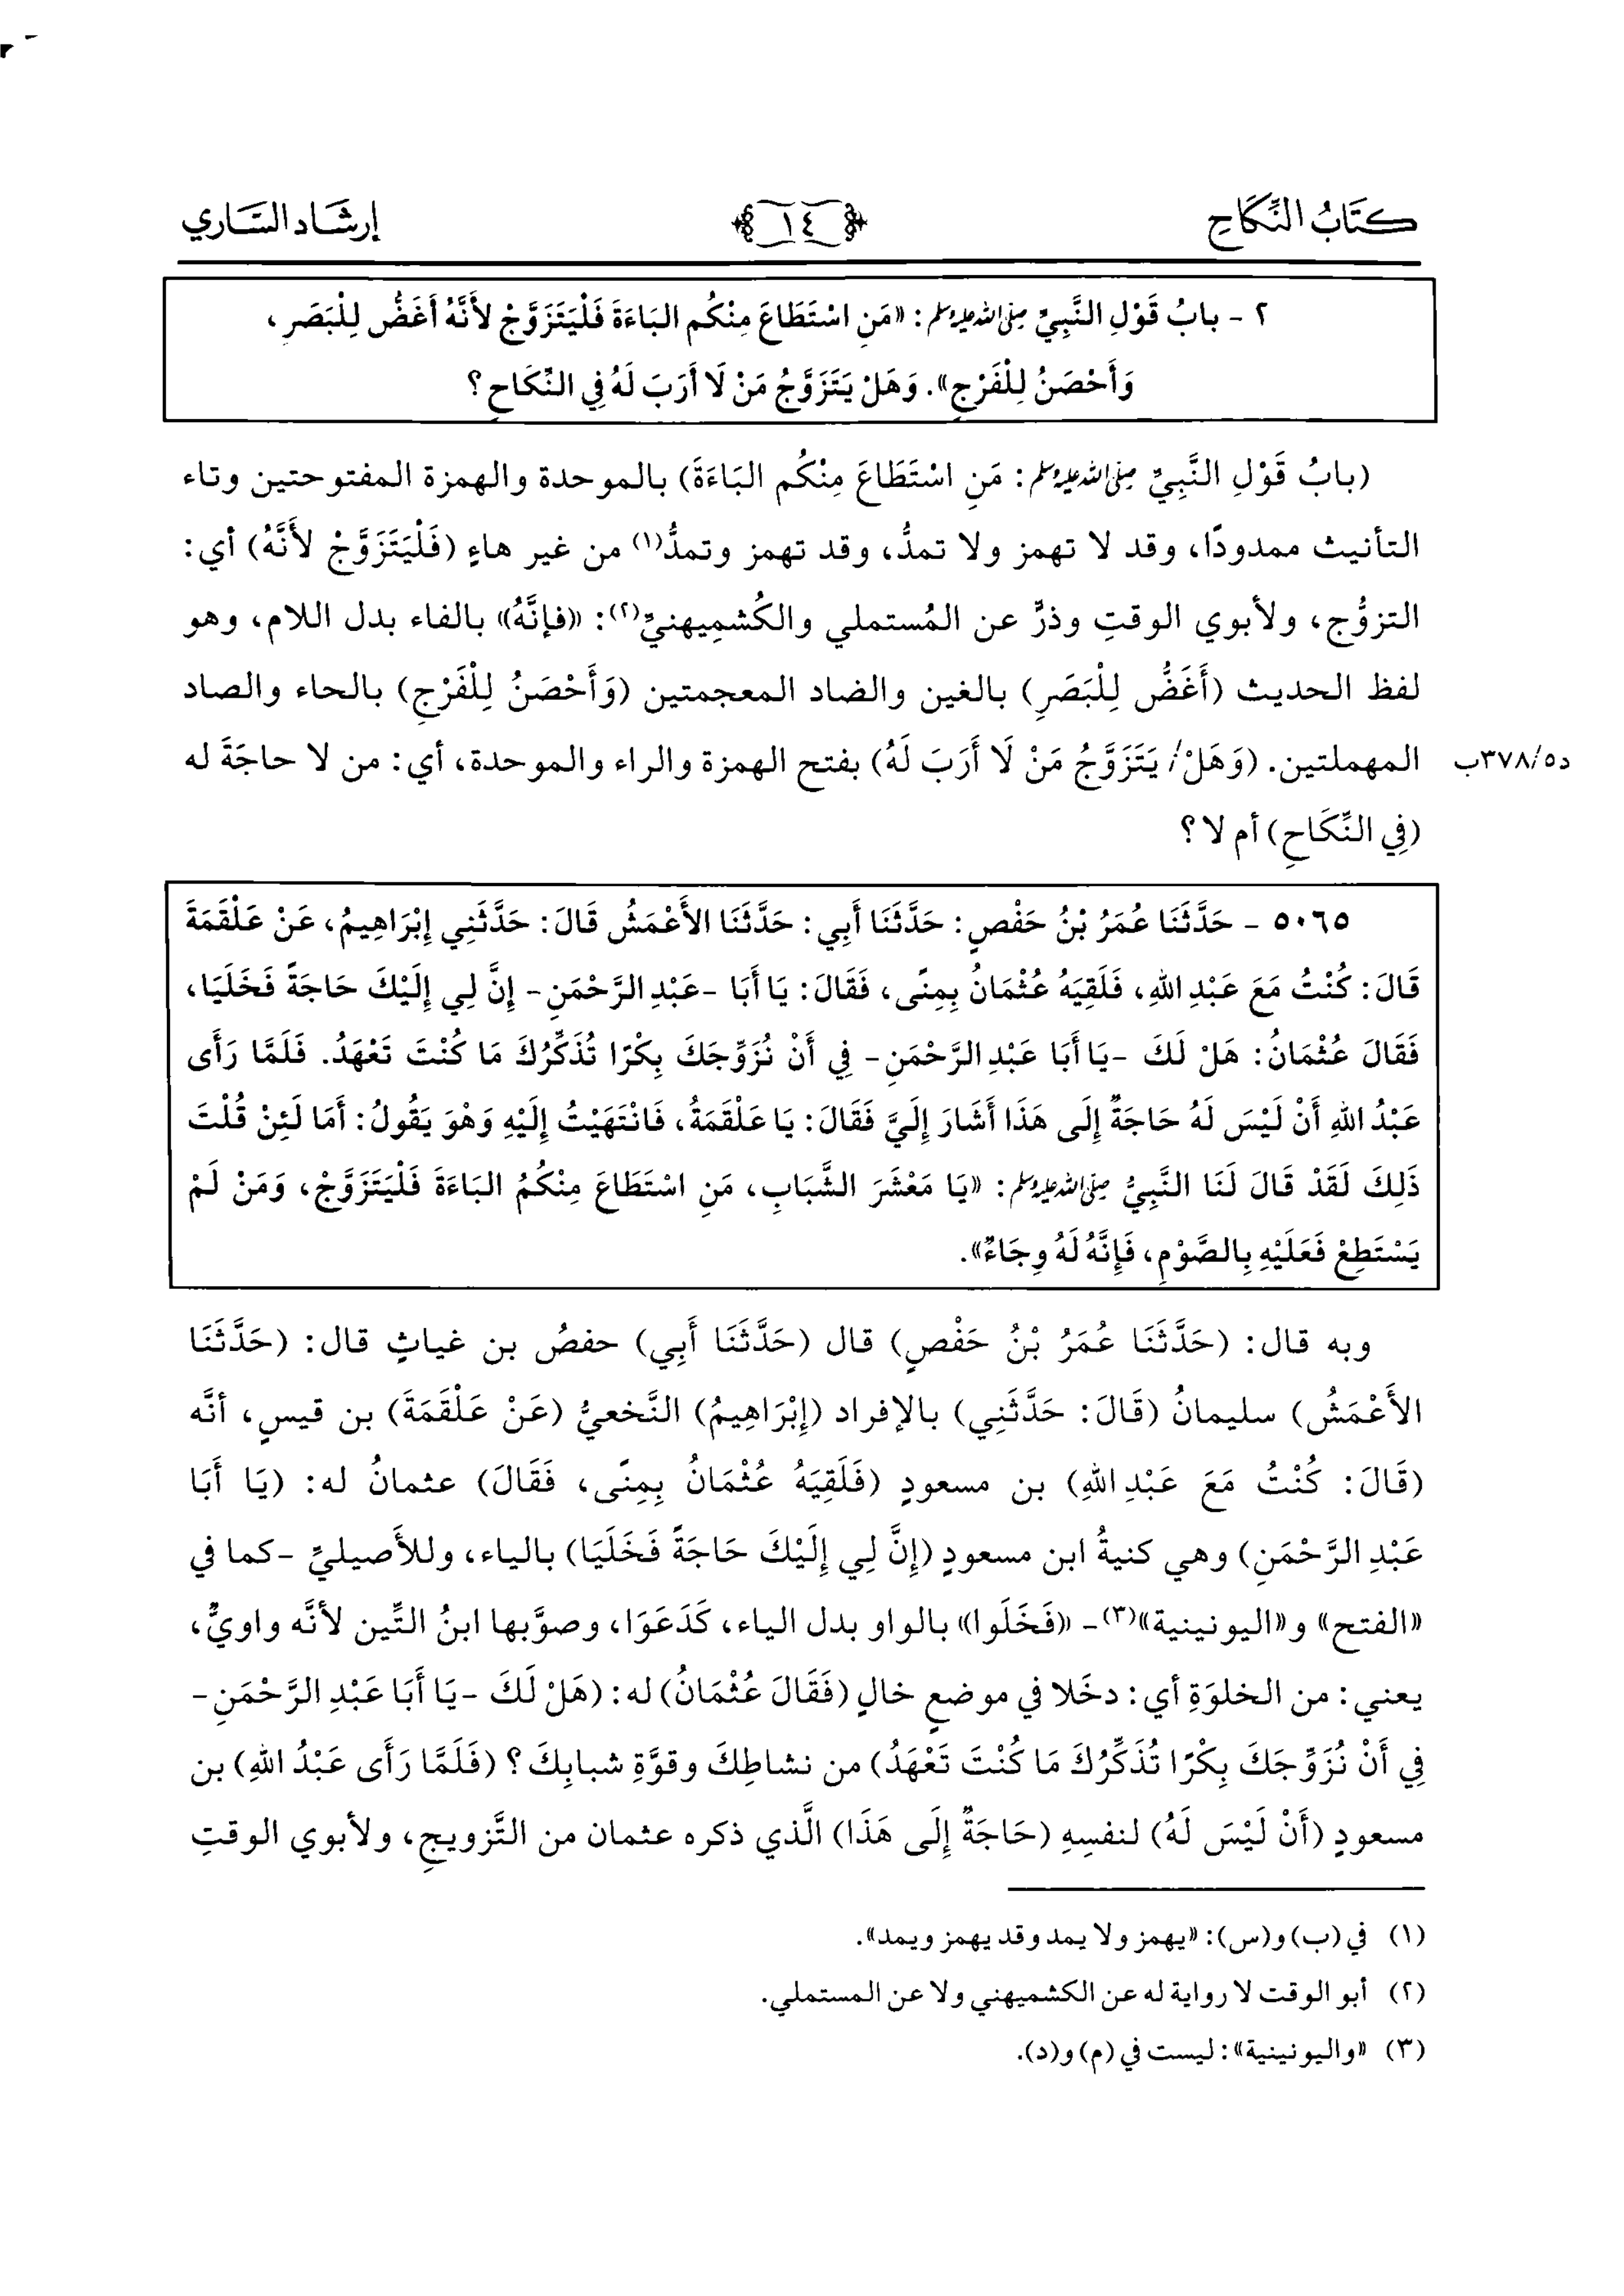 كتاب النكاح
١٤
إرشاد الساري
٢ - بابُ قَوْلِ النَّبِيِّ ﷺ: «مَنِ اسْتَطَاعَ مِنْكُم البَاءَةَ فَلْيَتَزَوَّجْ لأَنَّهُ أَغَضُّ لِلْبَصَرِ،
وَأَحْصَنُ لِلْفَرْجِ». وَهَلْ يَتَزَوَّجُ مَنْ لَا أَرَبَ لَهُ فِي النِّكَاحِ؟
(بابُ قَوْلِ النَّبِيِّ ﷺ: مَنِ اسْتَطَاعَ مِنْكُم البَاءَةَ) بالموحدة والهمزة المفتوحتين وتاء
التأنيث ممدودًا، وقد لا تهمز ولا تمدُّ، وقد تهمز وتمدُّ(١) من غير هاءٍ (فَلْيَتَزَوَّجْ لأَنَّهُ) أي:
التزوُّج، ولأبوي الوقتِ وذرٍّ عن المُستملي والكُشمِيهنيِّ(٢): «فإنَّهُ» بالفاء بدل اللام، وهو
لفظ الحديث (أَغَضُّ لِلْبَصَرِ) بالغين والضاد المعجمتين (وَأَحْصَنُ لِلْفَرْجِ) بالحاء والصاد
المهملتين. (وَهَلْ/ يَتَزَوَّجُ مَنْ لَا أَرَبَ لَهُ) بفتح الهمزة والراء والموحدة، أي: من لا حاجَةَ له
د٣٧٨/٥ب
(فِي النِّكَاحِ) أم لا؟
٥٠٦٥ - حَدَّثَنَا عُمَرُ بْنُ حَفْصٍ: حَدَّثَنَا أَبِي: حَدَّثَنَا الأَعْمَشُ قَالَ: حَدَّثَنِي إِبْرَاهِيمُ، عَنْ عَلْقَمَةَ
قَالَ: كُنْتُ مَعَ عَبْدِ اللهِ، فَلَقِيَهُ عُثْمَانُ بِمِنًى، فَقَالَ: يَا أَبَا -عَبْدِ الرَّحْمَنِ- إِنَّ لِي إِلَيْكَ حَاجَةً فَخَلَيَا،
فَقَالَ عُثْمَانُ: هَلْ لَكَ -يَا أَبَا عَبْدِ الرَّحْمَنِ- فِي أَنْ نُزَوِّجَكَ بِكْرًا تُذَكِّرُكَ مَا كُنْتَ تَعْهَدُ. فَلَمَّا رَأَى
عَبْدُ اللهِ أَنْ لَيْسَ لَهُ حَاجَةٌ إِلَى هَذَا أَشَارَ إِلَيَّ فَقَالَ: يَا عَلْقَمَةُ، فَانْتَهَيْتُ إِلَيْهِ وَهْوَ يَقُولُ: أَمَا لَئِنْ قُلْتَ
ذَلِكَ لَقَدْ قَالَ لَنَا النَّبِيُّ ﷺ: «يَا مَعْشَرَ الشَّبَابِ، مَنِ اسْتَطَاعَ مِنْكُمُ البَاءَةَ فَلْيَتَزَوَّجْ، وَمَنْ لَمْ
يَسْتَطِعْ فَعَلَيْهِ بِالصَّوْمِ، فَإِنَّهُ لَهُ وِجَاءٌ».
وبه قال: (حَدَّثَنَا عُمَرُ بْنُ حَفْصٍ) قال (حَدَّثَنَا أَبِي) حفصُ بن غياثٍ قال: (حَدَّثَنَا
الأَعْمَشُ) سليمانُ (قَالَ: حَدَّثَنِي) بالإفراد (إِبْرَاهِيمُ) النَّخعيُّ (عَنْ عَلْقَمَةَ) بن قيسٍ، أنَّه
(قَالَ: كُنْتُ مَعَ عَبْدِ اللهِ) بن مسعودٍ (فَلَقِيَهُ عُثْمَانُ بِمِنًى، فَقَالَ) عثمانُ له: (يَا أَبَا
عَبْدِ الرَّحْمَنِ) وهي كنيةُ ابن مسعودٍ (إِنَّ لِي إِلَيْكَ حَاجَةً فَخَلَيَا) بالياء، وللأَصيليِّ -كما في
«الفتح» و«اليونينية»(٣)- «فَخَلَوا» بالواو بدل الياء، كَدَعَوَا، وصوَّبها ابنُ التِّين لأنَّه واويٌّ،
يعني: من الخلوَةِ أي: دخَلا في موضعٍ خالٍ (فَقَالَ عُثْمَانُ) له: (هَلْ لَكَ -يَا أَبَا عَبْدِ الرَّحْمَنِ-
فِي أَنْ نُزَوِّجَكَ بِكْرًا تُذَكِّرُكَ مَا كُنْتَ تَعْهَدُ) من نشاطِكَ وقوَّةِ شبابِكَ؟ (فَلَمَّا رَأَى عَبْدُ اللهِ) بن
مسعودٍ (أَنْ لَيْسَ لَهُ) لنفسِهِ (حَاجَةٌ إِلَى هَذَا) الَّذي ذكره عثمان من التَّزويجِ، ولأبوي الوقتِ
(١) في (ب) و(س): «يهمز ولا يمد وقد يهمز ويمد».
(٢) أبو الوقت لا رواية له عن الكشميهني ولا عن المستملي.
(٣) «واليونينية»: ليست في (م) و(د).